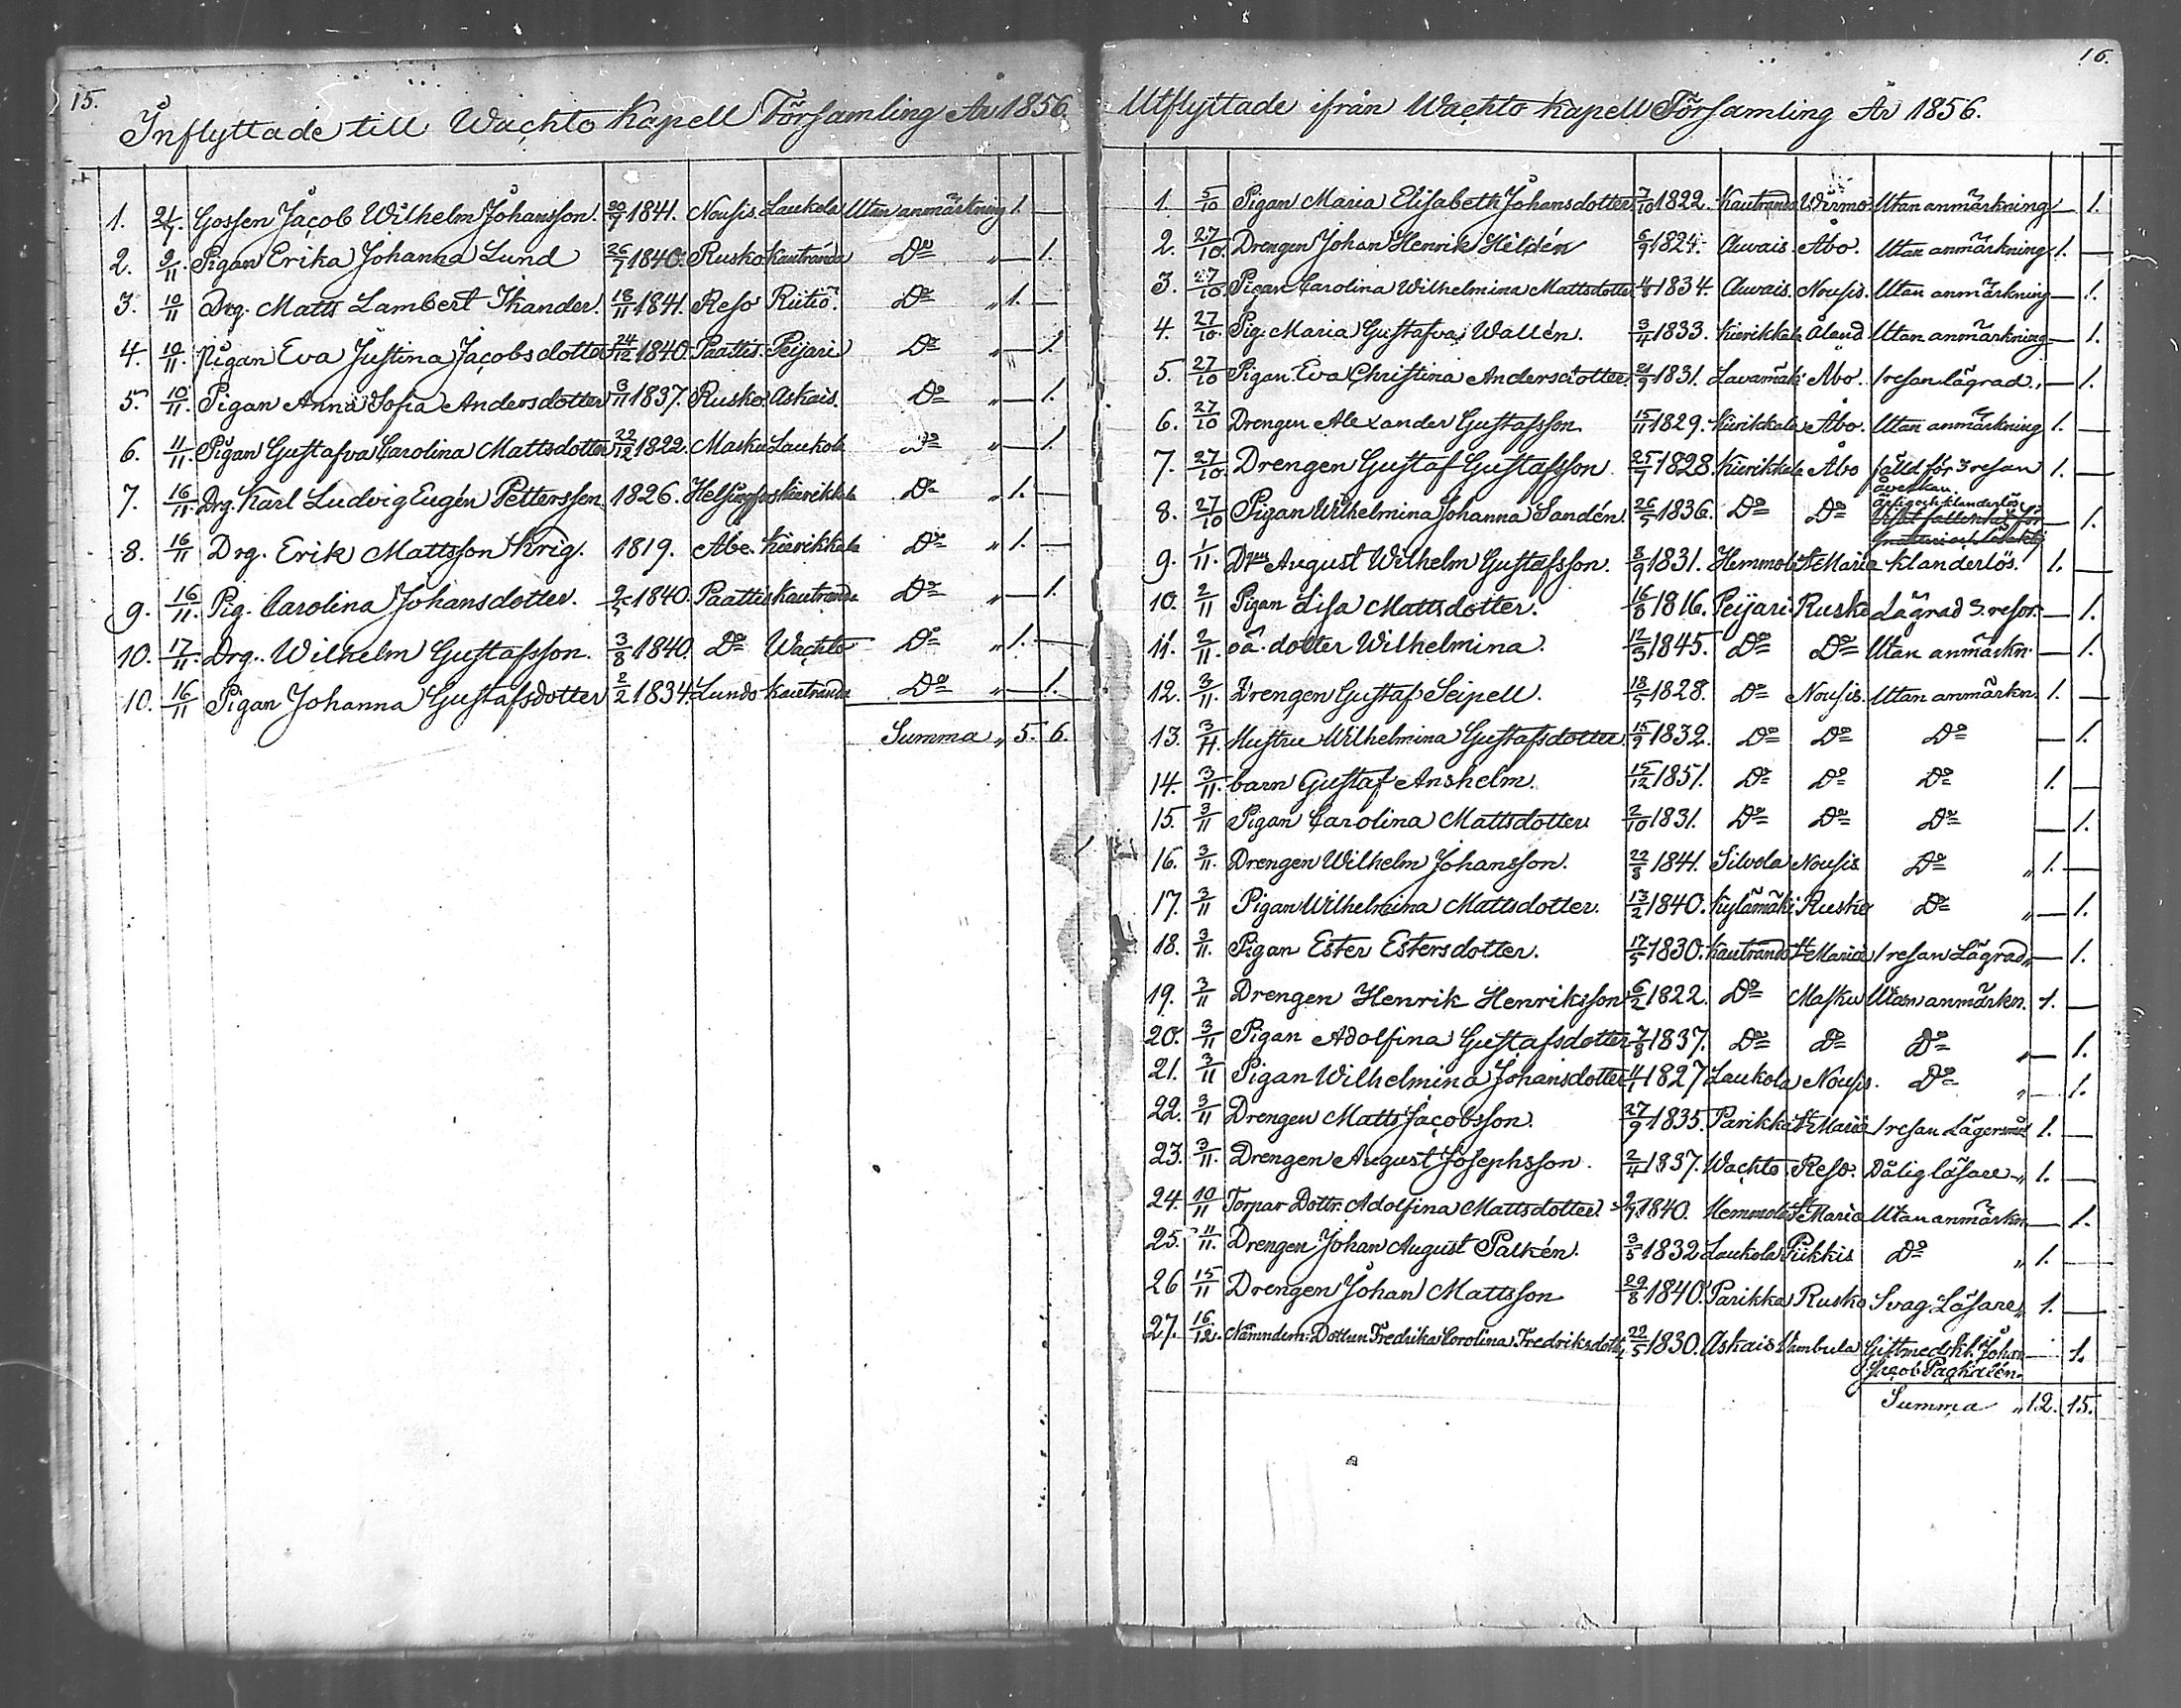 15.
Inflyttade till Wachto Kapell Församling År 1856.
1. 21/7. Gossen Jacob Wilhelm Johansson. 20/7 1841. Nousis. Laukola Utan anmärkning 1. —
2. 9/11. Pigan Erika Johanna Lund 26/7 1840. Rusko. Kautranda Do „ — 1.
3. 10/11 Drg. Matts Lambert Ikander. 18/11 1841. Reso Riitiö. Do „ 1. —
4. 10/11. Pigan Eva Justina Jacobsdotter 24/12 1840. Paattis. Peijari Do „ — 1.
5. 10/11. Pigan Anna Sofia Andersdotter 3/11 1837. Rusko. Askais. Do „ — 1.
6. 11/11. Pigan Gustafva Carolina Mattsdotter 22/12 1822. Masku Laukola Do „ — 1.
7. 16/11. Drg. Karl Ludvig Eugén Pettersson. 1826. Helsingfors Kierikkala Do „ 1. —
8. 16/11 Drg. Erik Mattsson Krig. 1819. Åbo. Kierikkala Do „ 1. —
9. 16/11. Pig. Carolina Johansdotter. 2/5 1840. Paattis Kautranda Do „ — 1.
10. 17/11. Drg. Wilhelm Gustafsson. 3/8 1840. Do Wachto Do „ 1. —
10. 16/11 Pigan Johanna Gustafsdotter 2/2 1834. Lundo Kautranda Do „ — 1.
Summa „ 5. 6.
16.
Utflyttade ifrån Wachto Kapell Församling År 1856.
1. 5/10 Pigan Maria Elisabeth Johansdotter 7/10 1822. Kautranda Wirmo Utan anmärkning — 1.
2. 27/10. Drengen Johan Henrik Hildén 6/9 1824. Auvais. Åbo. Utan anmärkning 1. —
3. 27/10. Pigan Carolina Wilhelmina Mattsdotter 4/8 1834. Auvais. Nousis. Utan anmärkning — 1.
4. 27/10. Pig. Maria Gustafva Wallén. 3/4 1833. Kierikkala Åland Utan anmärkning — 1.
5. 27/10 Pigan Eva Christina Andersdotter. 21/9 1831. Lavamäki Åbo. 1 resan lägrad. — 1.
6. 27/10 Drengen Alexander Gustafsson 15/11 1829. Kierikkala Åbo. Utan anmärkning 1. —
7. 27/10. Drengen Gustaf Gustafsson 25/7 1828. Kierikkala Åbo fälld för 3 resan 1. —
8. 27/10 Pigan Wilhelmina Johanna Sandén. 26/5 1836. Do Do ärlig och klanderlös — 1.
9. 1/11. Dgen August Wilhelm Gustafsson. 8/9 1831. Hemmola St Marie klanderlös. 1. —
10. 2/11 Pigan Lisa Mattsdotter. 16/8 1816. Peijari Rusko Lägrad 3. resor. — 1.
11. 2/11. oä. dotter Wilhelmina. 12/3 1845. Do Do Utan anmärkn. — 1.
12. 3/11. Drengen Gustaf Seipell. 18/5 1828. Do Nousis. Utan anmärkn. 1. —
13. 3/11. Hustru Wilhelmina Gustafsdotter 15/9 1832. Do Do Do — 1.
14. 3/11. barn Gustaf Anshelm. 15/12 1851. Do Do Do 1. —
15. 3/11 Pigan Carolina Mattsdotter. 2/10 1831. Do Do Do — 1.
16. 3/11. Drengen Wilhelm Johansson. 22/8 1841. Silvola Nousis Do „ 1. —
17. 3/11 Pigan Wilhelmina Mattsdotter. 13/2 1840. Kylämäki Rusko Do „ — 1.
18. 3/11. Pigan Ester Estersdotter. 17/5 1830. Kautranda St Marie 1 resan Lägrad „ — 1.
19. 3/11 Drengen Henrik Henriksson 6/2 1822. Do Masku Utan anmärkn. 1. —
20. 3/11 Pigan Adolfina Gustafsdotter 7/8 1837. Do Do Do „ — 1.
21. 3/11 Pigan Wilhelmina Johansdotter 4/1 1827 Laukola Nousis. Do „ — 1.
22. 3/11 Drengen Matts Jacobsson. 27/9 1835. Parikka St Marie 1 resan Lägersmål 1. —
23. 3/11. Drengen August Josephsson. 2/4 1837. Wachto. Reso. Dålig läsare „ 1. —
24. 10/11 Torpar Dottr. Adolfina Mattsdotter. 2/7 1840. Hemmola St Marie Utan anmärkn — 1.
25. 11/11. Drengen Johan August Palkén. 3/5 1832 Laukola Piikkis Do „ 1. —
26 15/11 Drengen Johan Mattsson 29/8 1840. Parikka Rusko Svag Läsare „ 1. —
27. 16/12. Nämndem. Dottren Fredrika Carolina Fredriksdottr 22/5 1830. Askais Gift med Johan — 1.
Jacob
Summa „ 12. 15.